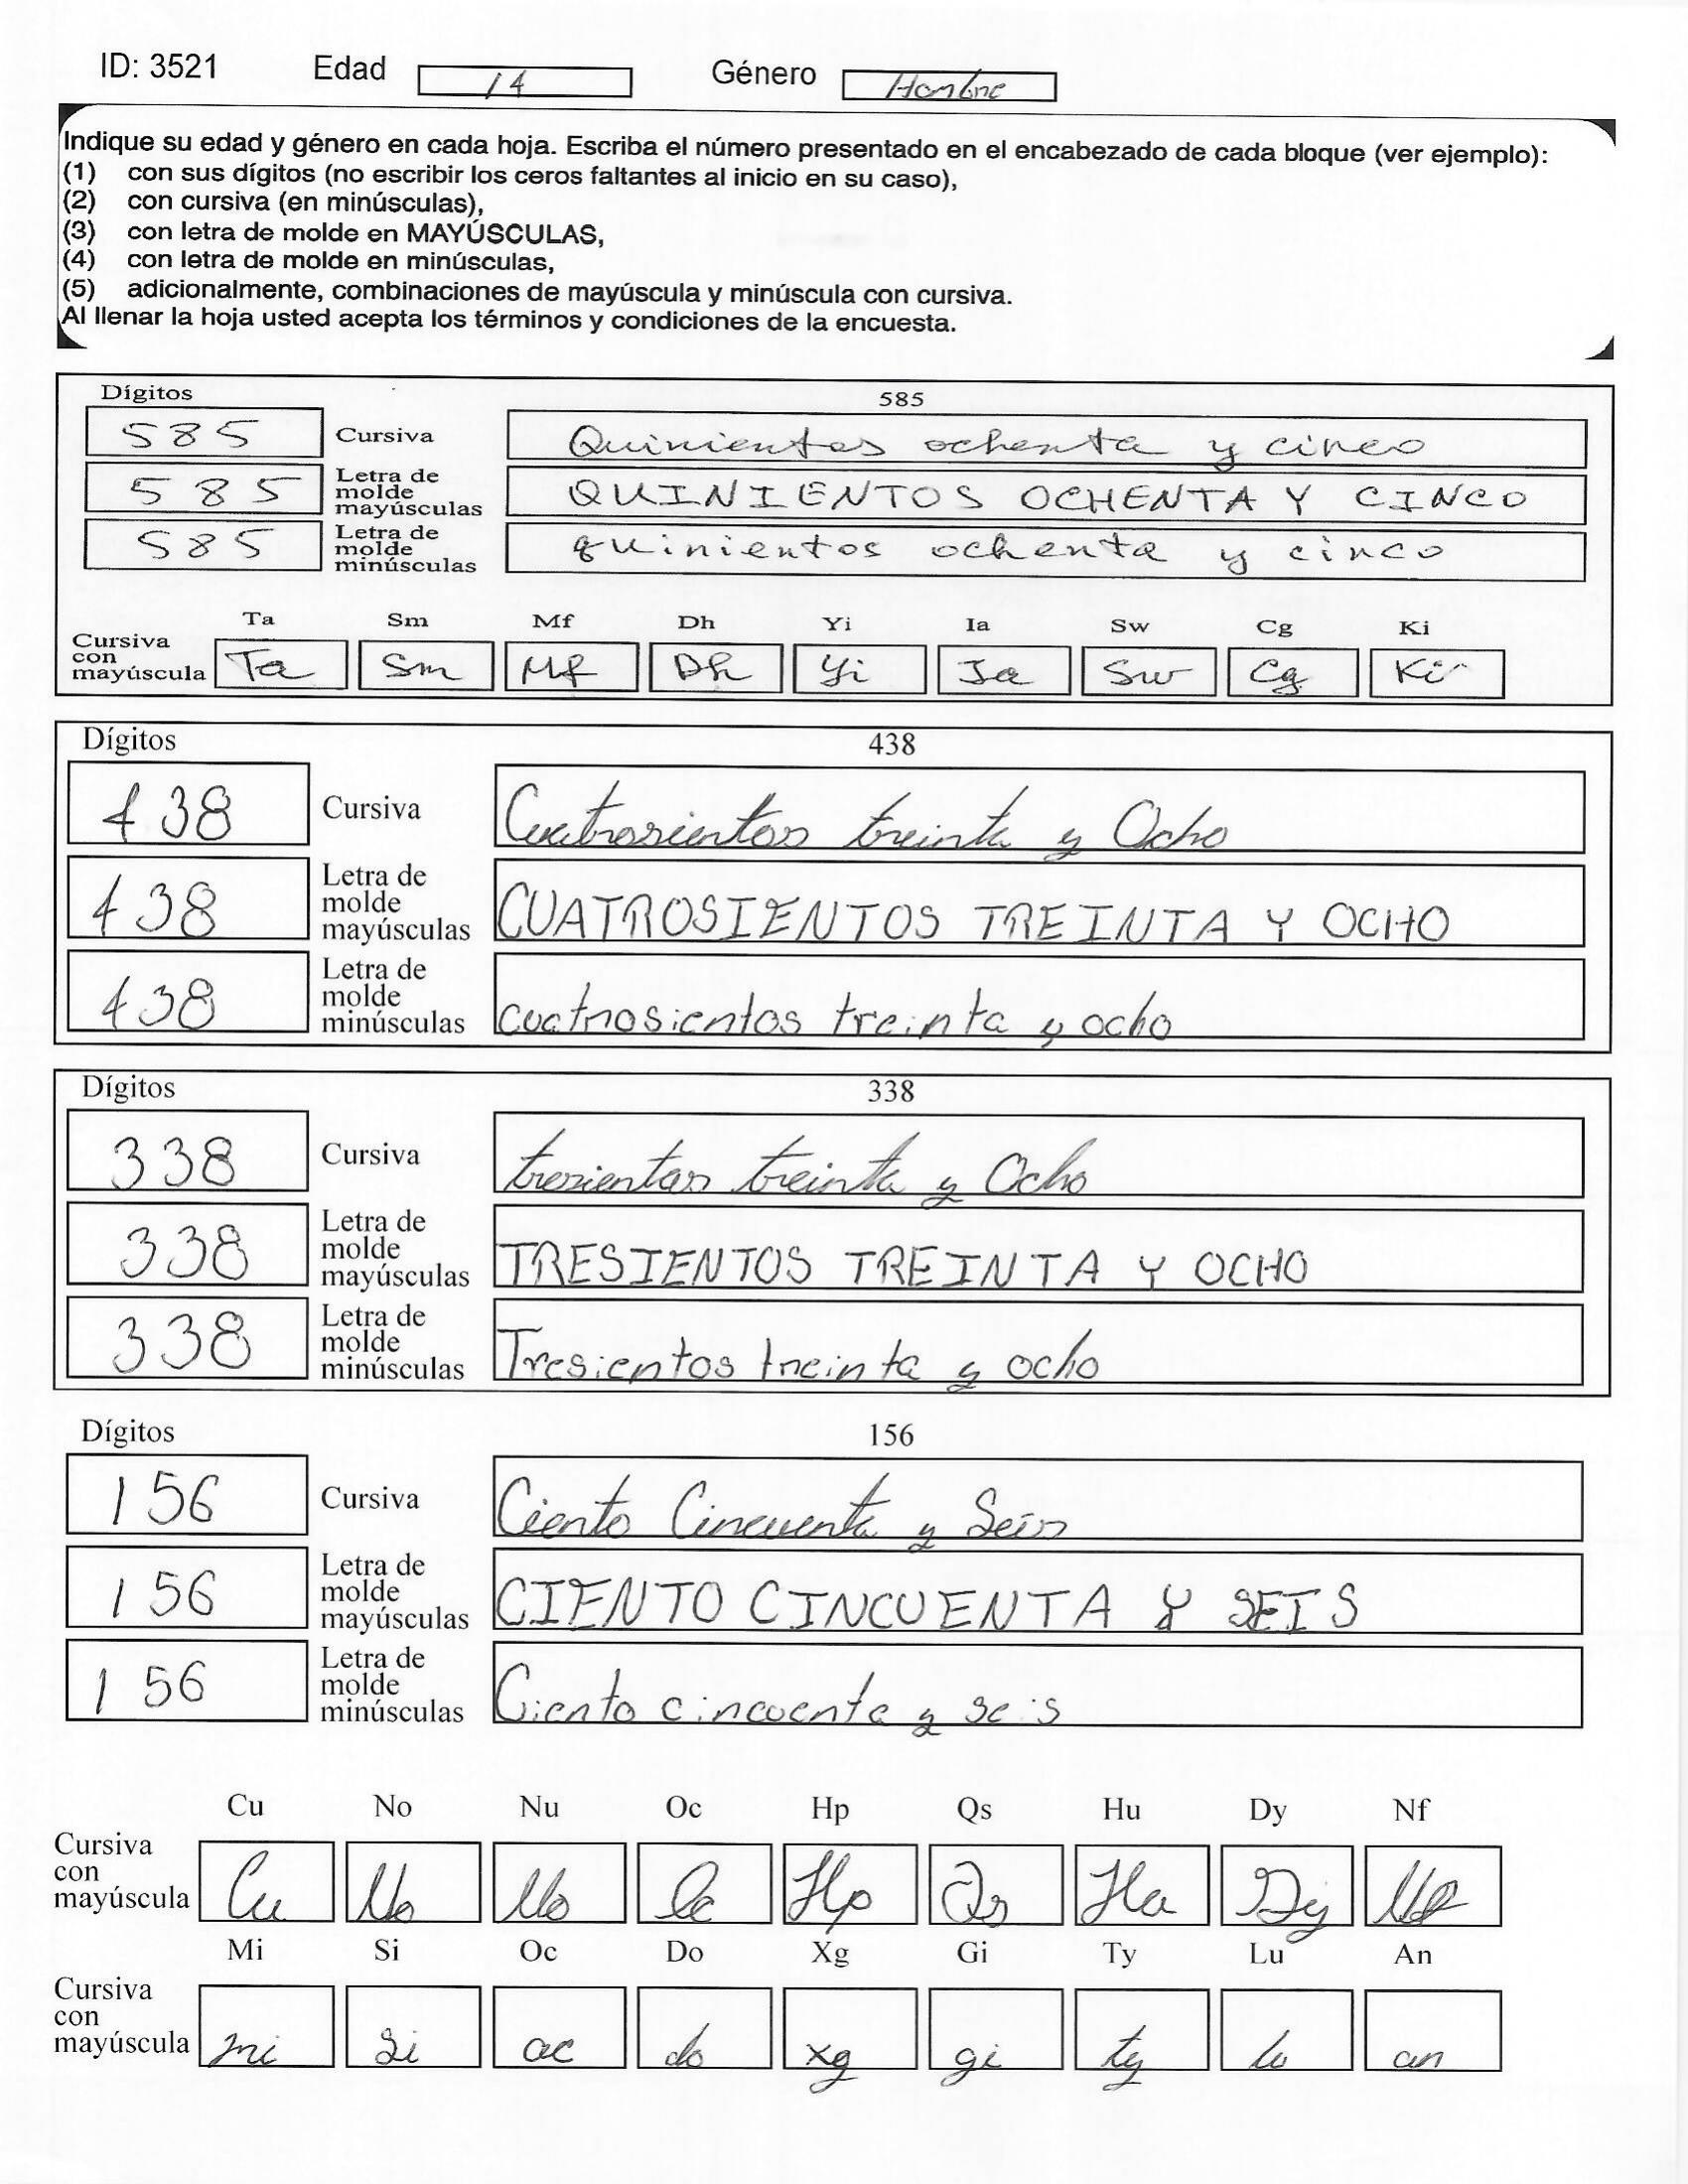 ID: 3521 Edad 14 Género Hombre
Indique su edad y género en cada hoja. Escriba el número presentado en el encabezado de cada bloque (ver ejemplo):
(1) con sus dígitos (no escribir los ceros faltantes al inicio en su caso),
(2) con cursiva (en minúsculas),
(3) con letra de molde en MAYÚSCULAS,
(4) con letra de molde en minúsculas,
(5) adicionalmente, combinaciones de mayúscula y minúscula con cursiva.
Al llenar la hoja usted acepta los términos y condiciones de la encuesta.
Dígitos 585
585 Cursiva Quinientos ochenta y cinco
585 Letra de molde mayúsculas QUINIENTOS OCHENTA Y CINCO
585 Letra de molde minúsculas quinientos ochenta y cinco
Ta Sm Mf Dh Yi Ia Sw Cg Ki
Cursiva con mayúscula Ta Sm Mf Dh Yi Ia Sw Cg Ki
Dígitos 438
438 Cursiva Cuatrosientos treinta y Ocho
438 Letra de molde mayúsculas CUATROSIENTOS TREINTA Y OCHO
438 Letra de molde minúsculas cuatrosientos treinta y ocho
Dígitos 338
338 Cursiva tresientos treinta y Ocho
338 Letra de molde mayúsculas TRESIENTOS TREINTA Y OCHO
338 Letra de molde minúsculas Tresientos treinta y ocho
Dígitos 156
156 Cursiva Ciento Cincuenta y Seis
156 Letra de molde mayúsculas CIENTO CINCUENTA Y SEIS
156 Letra de molde minúsculas Ciento cincuenta y seis
Cu No Nu Oc Hp Qs Hu Dy Nf
Cursiva con mayúscula Cu No No Oc Hp Qs Ha Dy Nf
Mi Si Oc Do Xg Gi Ty Lu An
Cursiva con mayúscula mi Si oc do xg gi ty lu an